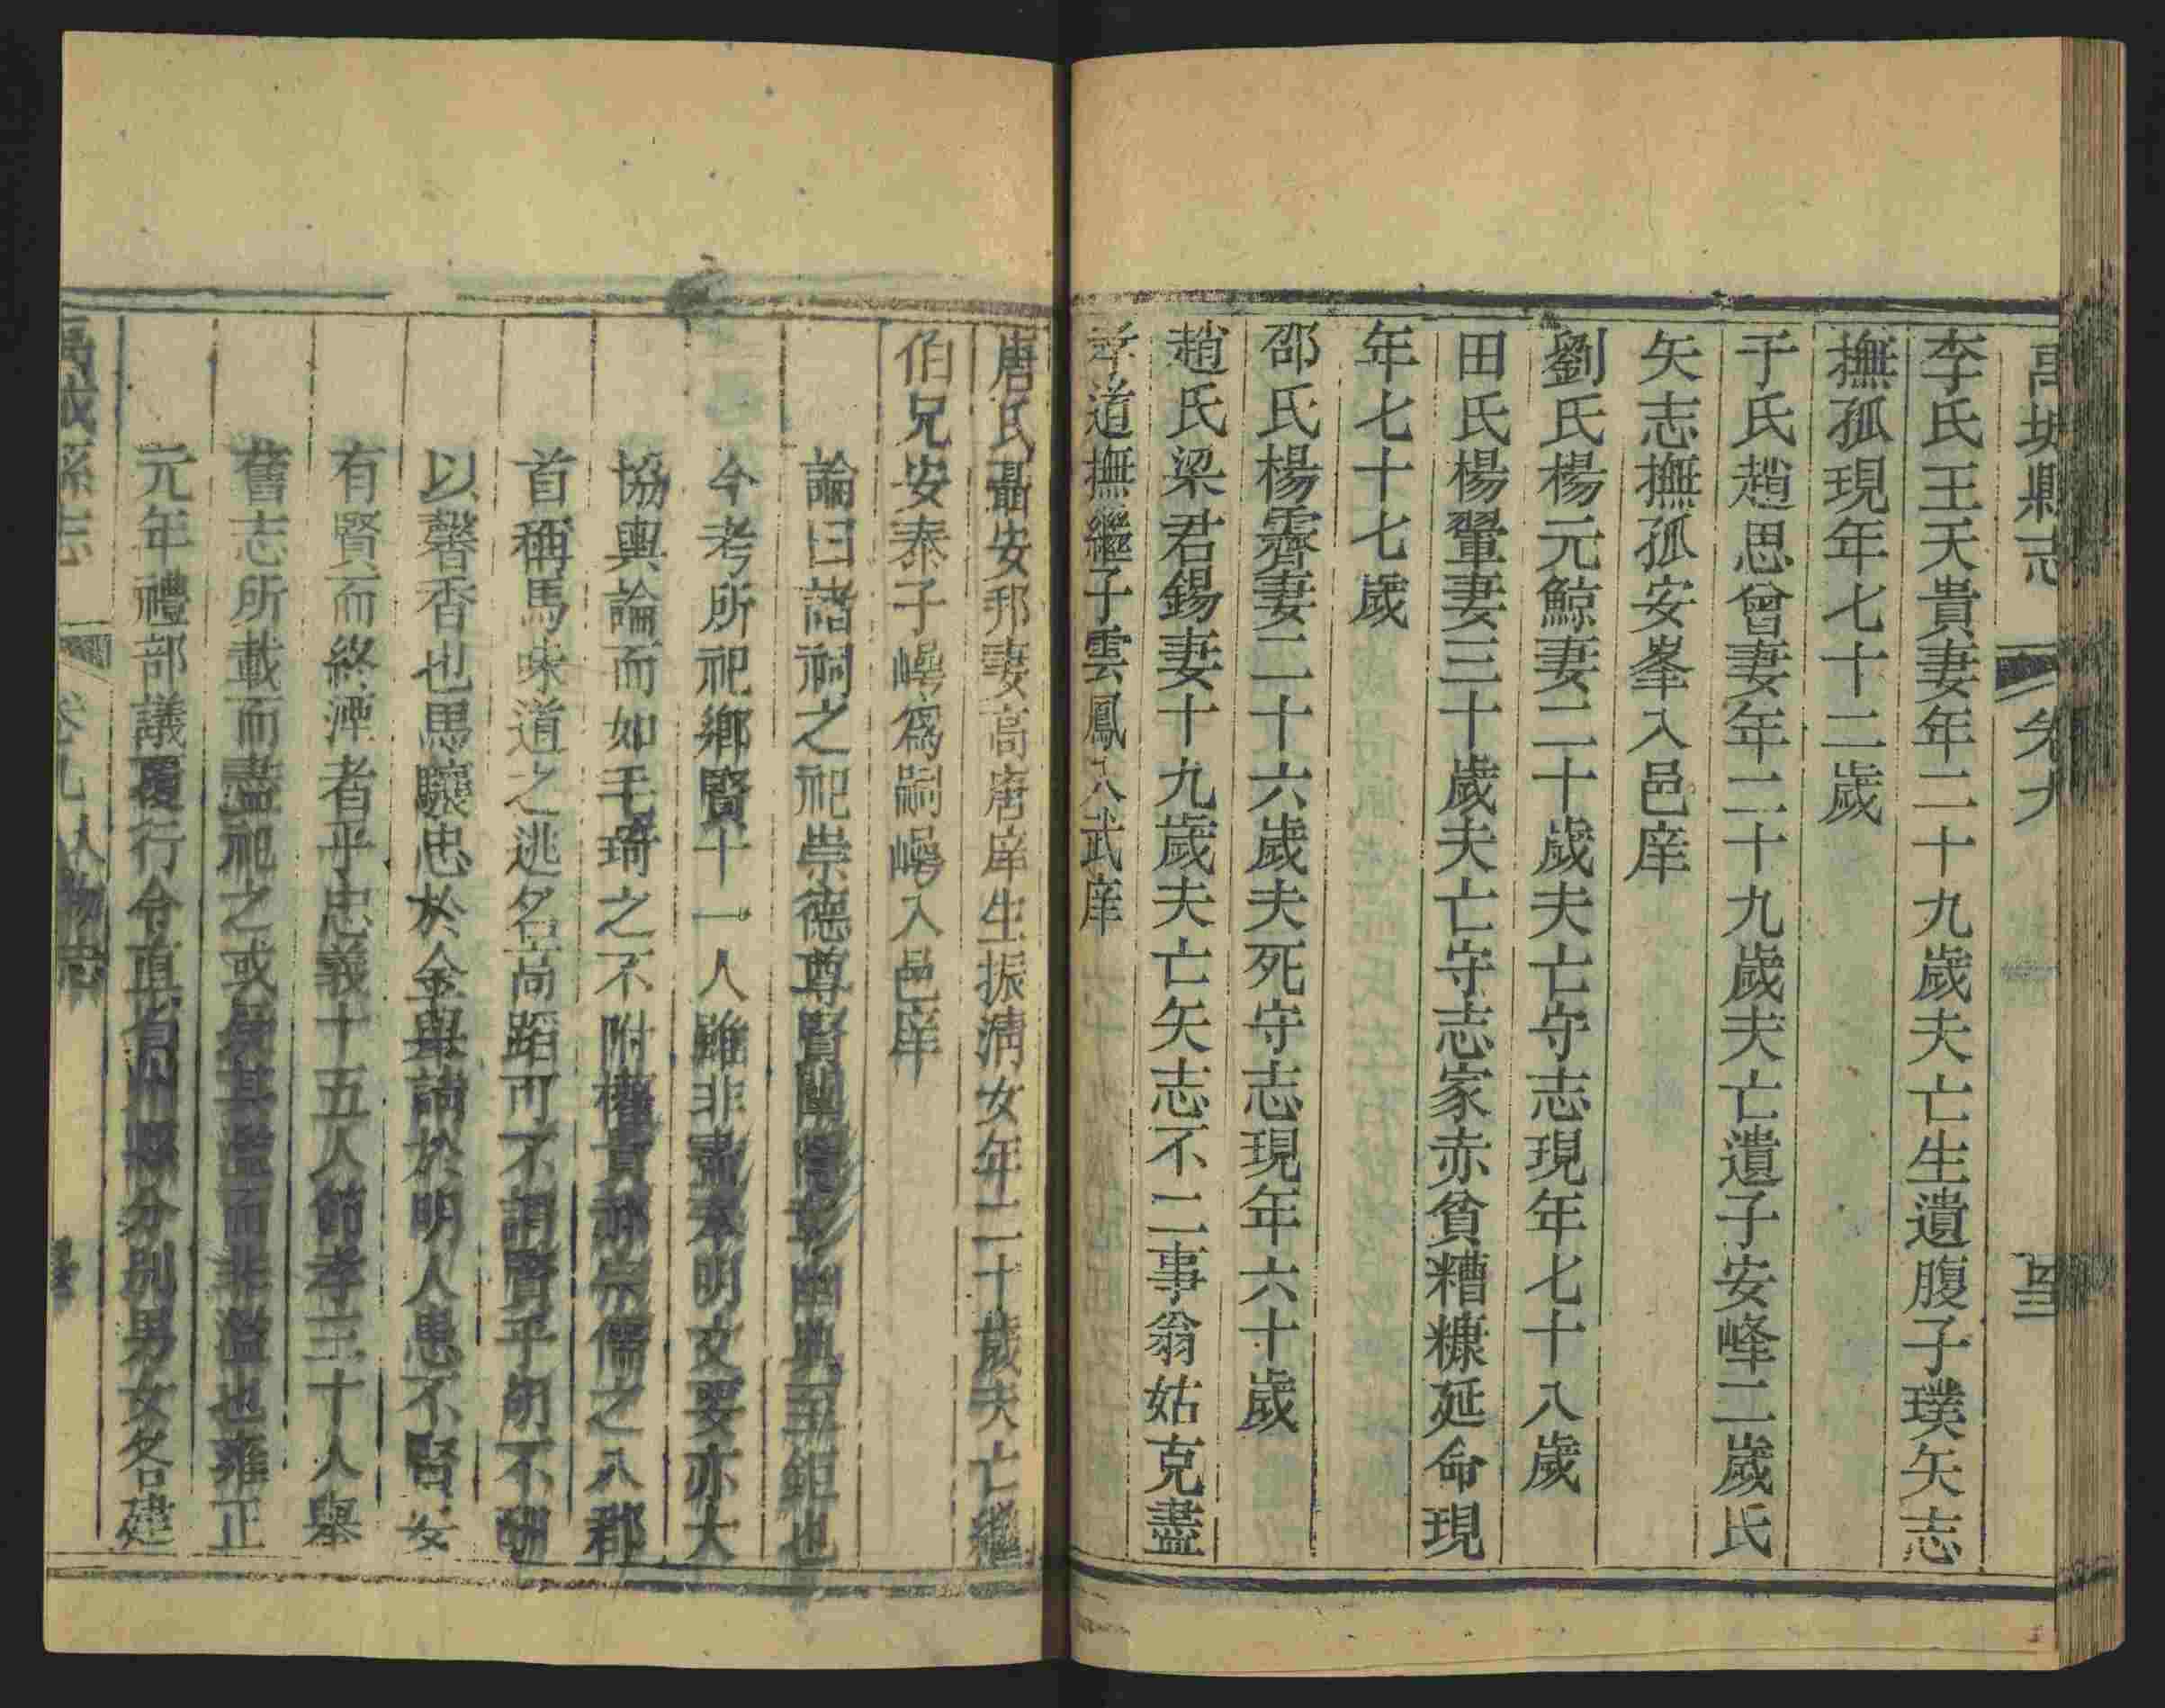 禹城縣志 卷九 四三
李氏王天貴妻年二十九歲夫亡生遺腹子璞矢志
撫孤現年七十二歲
于氏趙思曾妻年二十九歲夫亡遺子安峰二歲氏
矢志撫孤安峯入邑庠
劉氏楊元鯨妻二十歲夫亡守志現年七十八歲
田氏楊翬妻三十歲夫亡守志家赤貧糟糠延命現
年七十七歲
邵氏楊霽妻二十六歲夫死守志現年六十歲
趙氏梁君錫妻十九歲夫亡矢志不二事翁姑克盡
孝道撫繼子雲鳳入武庠
唐氏聶安邦妻高唐庠生振淸女年二十歲夫亡繼
伯兄安泰子㠛爲嗣㠛入邑庠
論曰諸祠之祀崇德尊賢闡隱彰幽典至鉅也
今考所祀鄉賢十一人雖非盡奉明文要亦大
協輿論而如毛琦之不附權貴郝宗儒之入郡
首稱馬味道之逃名高蹈可不謂賢乎胡不酬
以馨香也馬驤忠於金與請於明人患不賢安
有賢而終湮者乎忠義十五人節孝三十人舉
舊志所載而盡祀之或矣其濫而非濫也雍正
元年禮部議覆行令直省州縣分別男女各建
禹城縣志 卷九 人物志